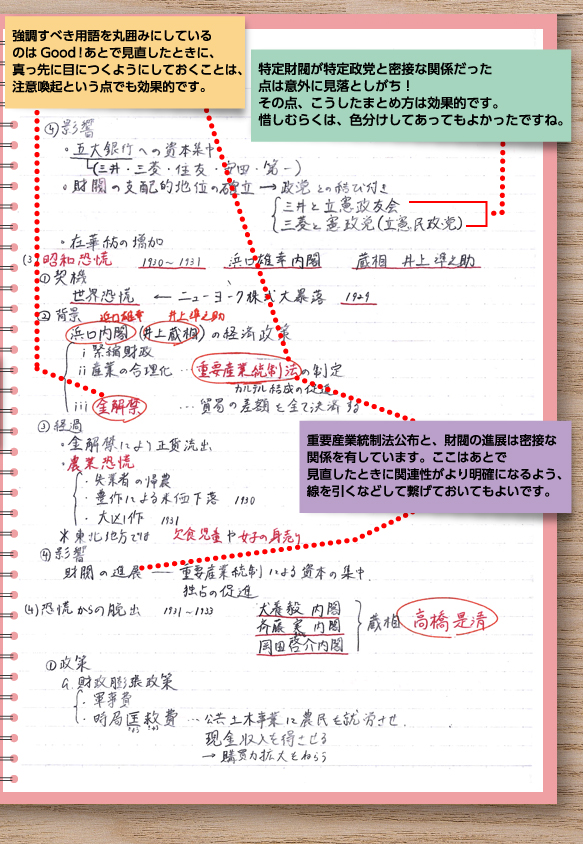 強調すべき用語を丸囲みにしている
のは Good!あとで見直したときに、
真っ先に目につくようにしておくことは、
注意喚起という点でも効果的です。
特定財閥が特定政党と密接な関係だった
点は意外に見落としがち！
その点、こうしたまとめ方は効果的です。
惜しむらくは、色分けしてあってもよかったですね。
④影響
・五大銀行への資本集中
(三井・三菱・住友・安田・第一)
・財閥の支配的地位の確立 → 政党との結び付き
三井と立憲政友会
三菱と憲政党(立憲民政党)
・在華紡の増加
(3)昭和恐慌 1930～1931 浜口雄幸内閣 蔵相 井上準之助
①契機
世界恐慌 ← ニューヨーク株式大暴落 1929
②背景 浜口雄幸 井上準之助
浜口内閣(井上蔵相)の経済政策
ⅰ緊縮財政
ⅱ産業の合理化 … 重要産業統制法の制定
カルテル結成の促進
ⅲ 金解禁 … 貿易の差額を金で決済する
③経過
・金解禁により正貨流出
・農業恐慌
・失業者の帰農
・豊作による米価下落 1930
・大凶作 1931
※東北地方では 欠食児童や女子の身売り
④影響
財閥の進展 ― 重要産業統制による資本の集中.
独占の促進
重要産業統制法公布と、財閥の進展は密接な
関係を有しています。ここはあとで
見直したときに関連性がより明確になるよう、
線を引くなどして繋げておいてもよいです。
(4)恐慌からの脱出 1931～1933 犬養毅内閣
斉藤実内閣
岡田啓介内閣
蔵相 高橋是清
①政策
a.財政膨張政策
・軍事費
・時局匡救費 … 公共土木事業に農民を就労させ.
きょう きゅう
現金収入を得させる
→ 購買力拡大をねらう